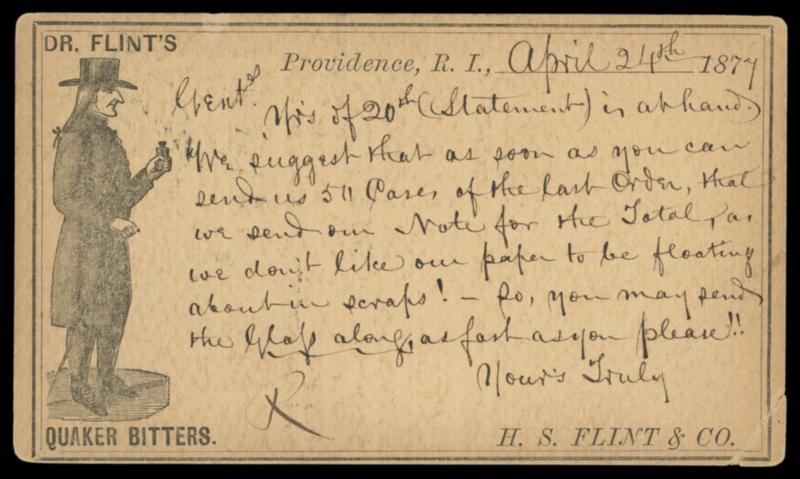 DR. FLINT'S
Providence, R. I., April 24th 1877
Gents.
Yr's of 20th (Statement) is at hand.
We suggest that as soon as you can
send us 50 Cases of the last Order, that
we send our Note for the Total, as
we don't like our paper to be floating
about in scraps! – So, you may send
the Glass along, as fast as you please!!
Your's Truly
QUAKER BITTERS.
H. S. FLINT & CO.